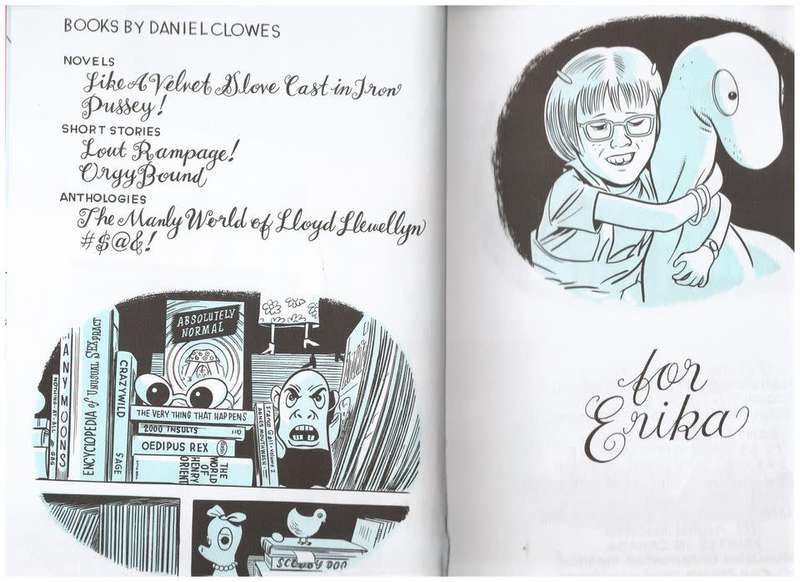 BOOKS BY DANIEL CLOWES
NOVELS
Like A Velvet Glove Cast in Iron
Pussey!
SHORT STORIES
Lout Rampage!
Orgy Bound
ANTHOLOGIES
The Manly World of Lloyd Llewellyn
#$@&!
ANY MOONS
ENCYCLOPEDIA of UNUSUAL SEX PRACT
CRAZY WILD
SAGE
ABSOLUTELY
NORMAL
THE VERY THING THAT HAPPENS
2000 INSULTS
OEDIPUS REX
THE
WORLD
OF
HENRY
ORIENT
SCOOBY DOO
for
Erika